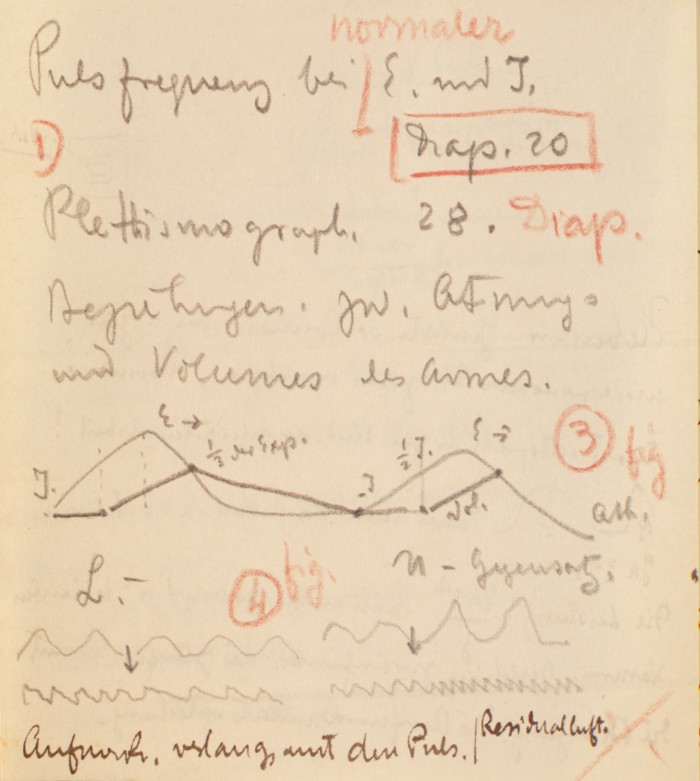 normaler
Pulsfrequenz bei E. und I.
1) Diap. 20
Plethismograph. 28. Diap.
Beziehungen. zw. Atmung
und Volumes des Armes.
E → 1/2 der Exp. 1/2 I. E → 3 fig
I. I Vol. Ath.
L. – 4 fig. U – Gegensatz.
Aufmerk. verlangsamt den Puls. / Residualluft.